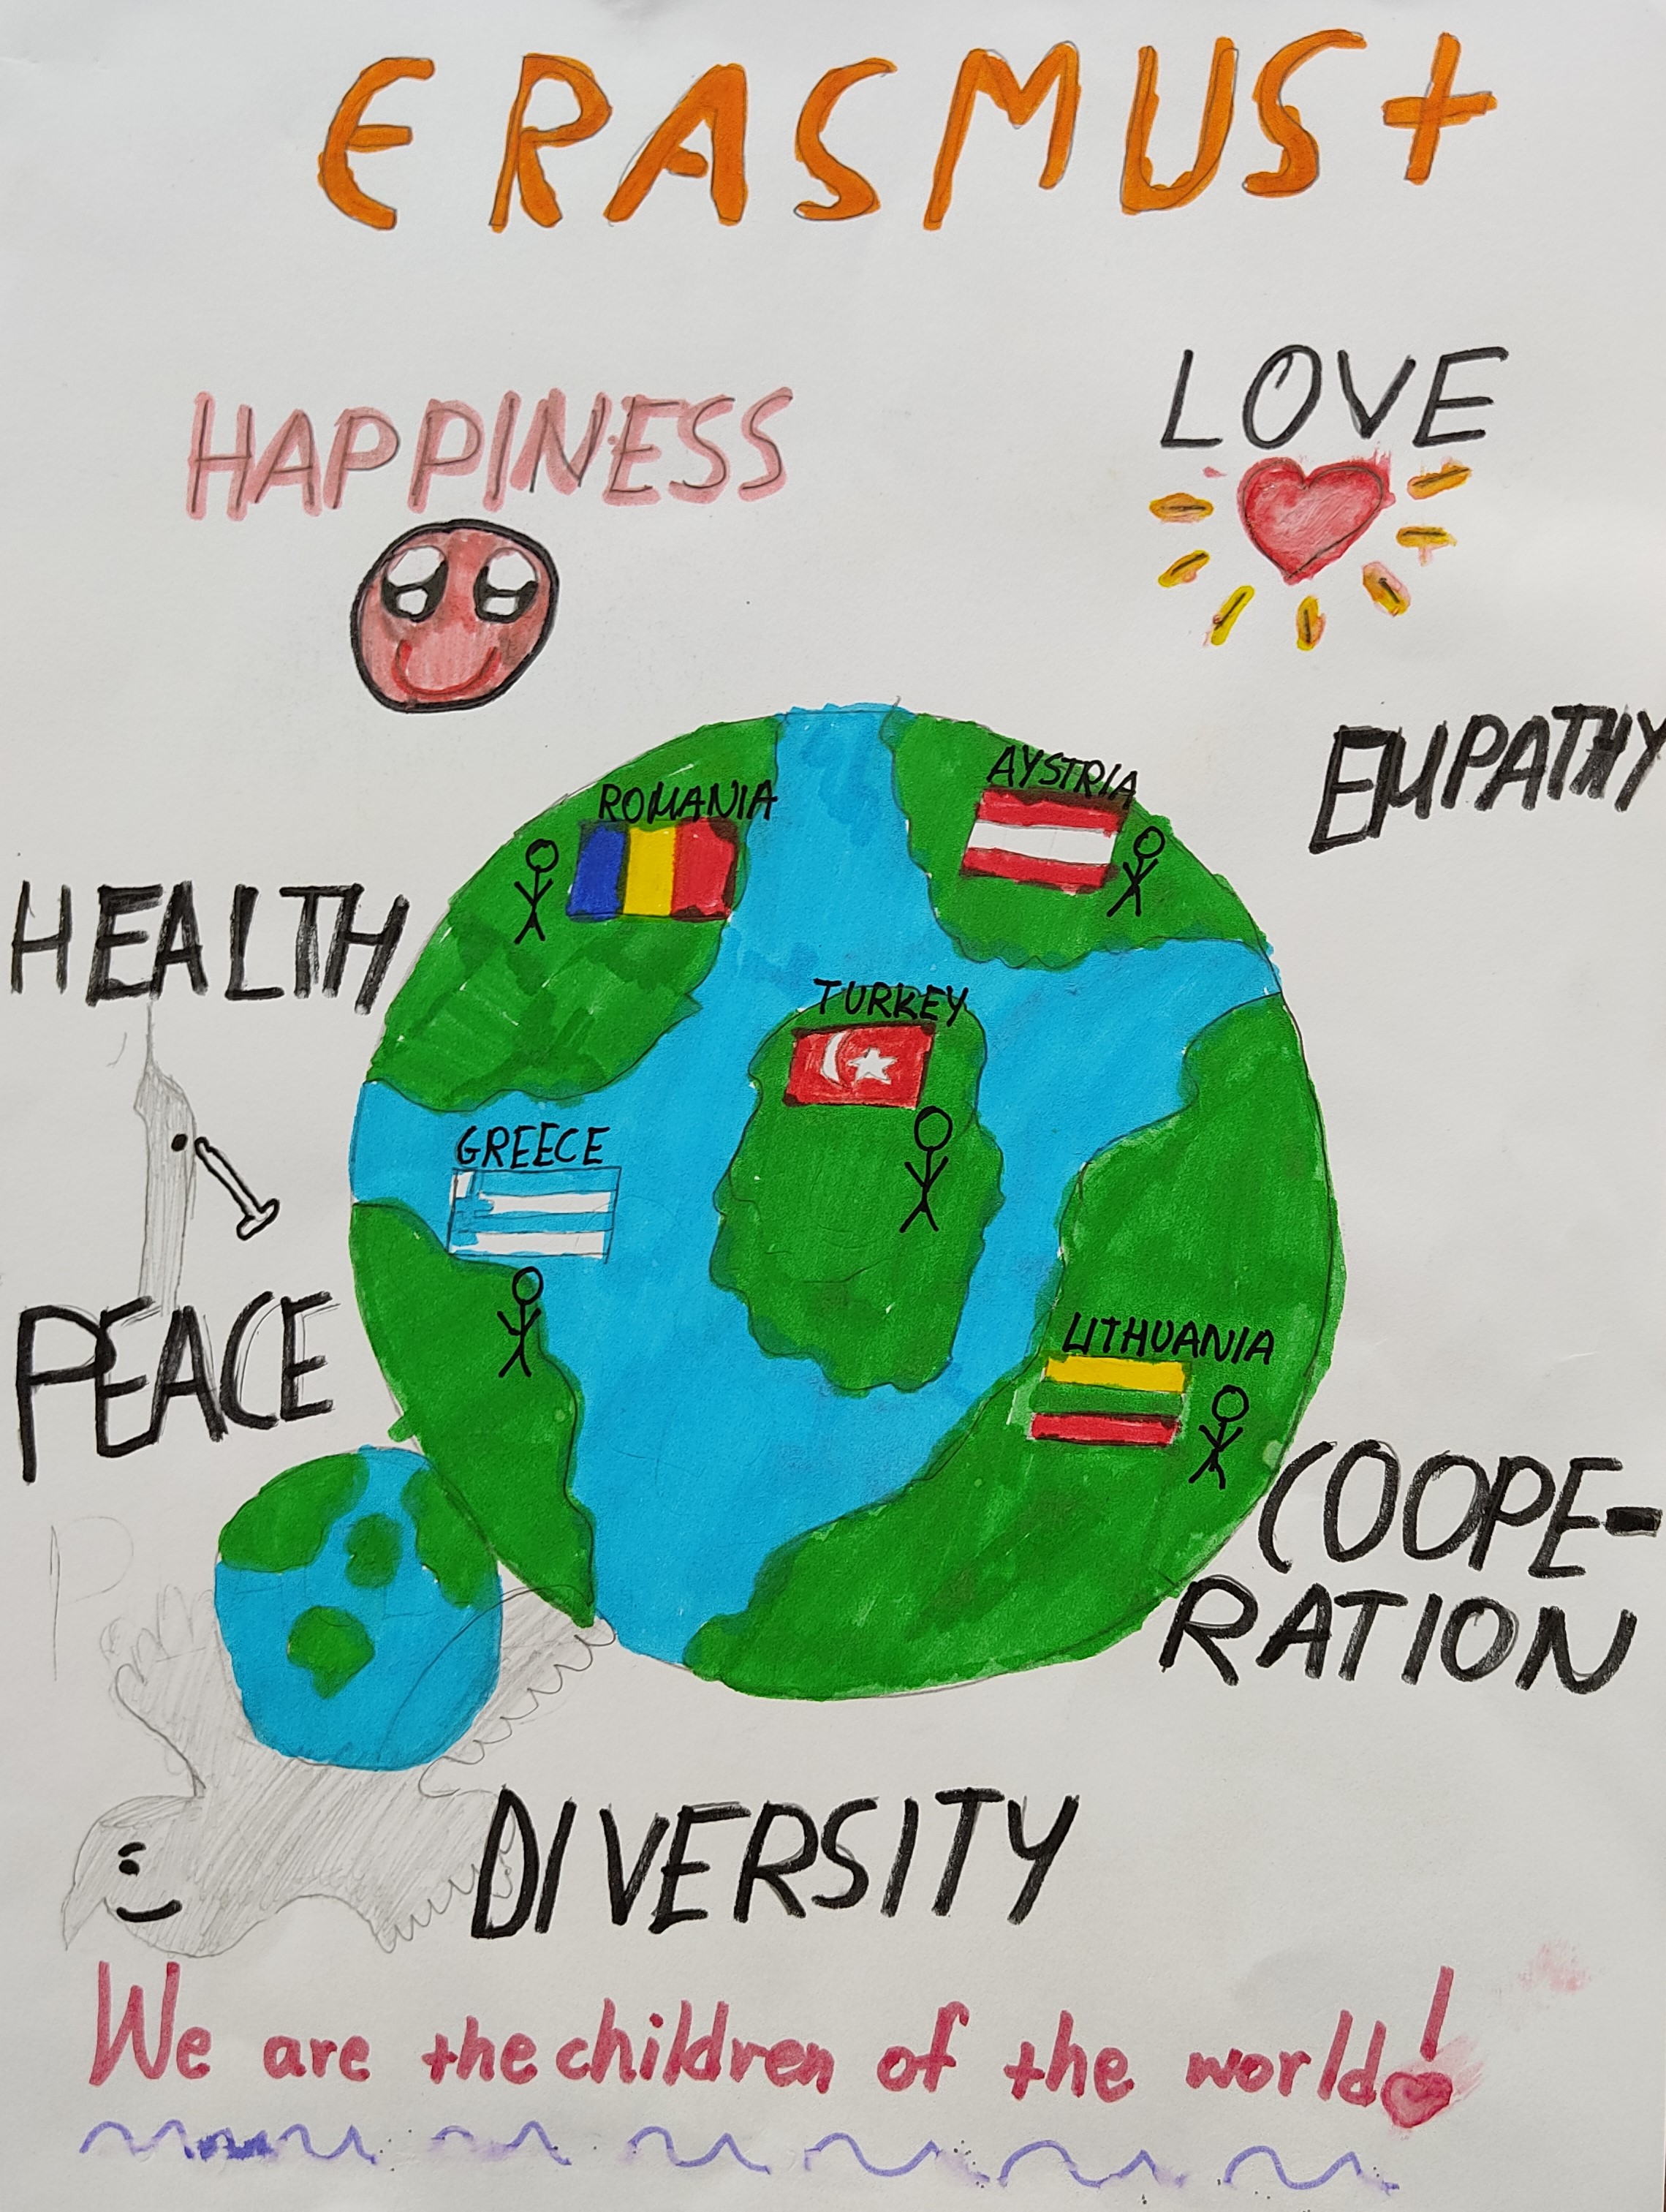 ERASMUS+
HAPPINESS
LOVE
EMPATHY
ROMANIA
AYSTRIA
HEALTH
TURKEY
GREECE
PEACE
LITHUANIA
COOPE-
RATION
P
DIVERSITY
We are the children of the world!